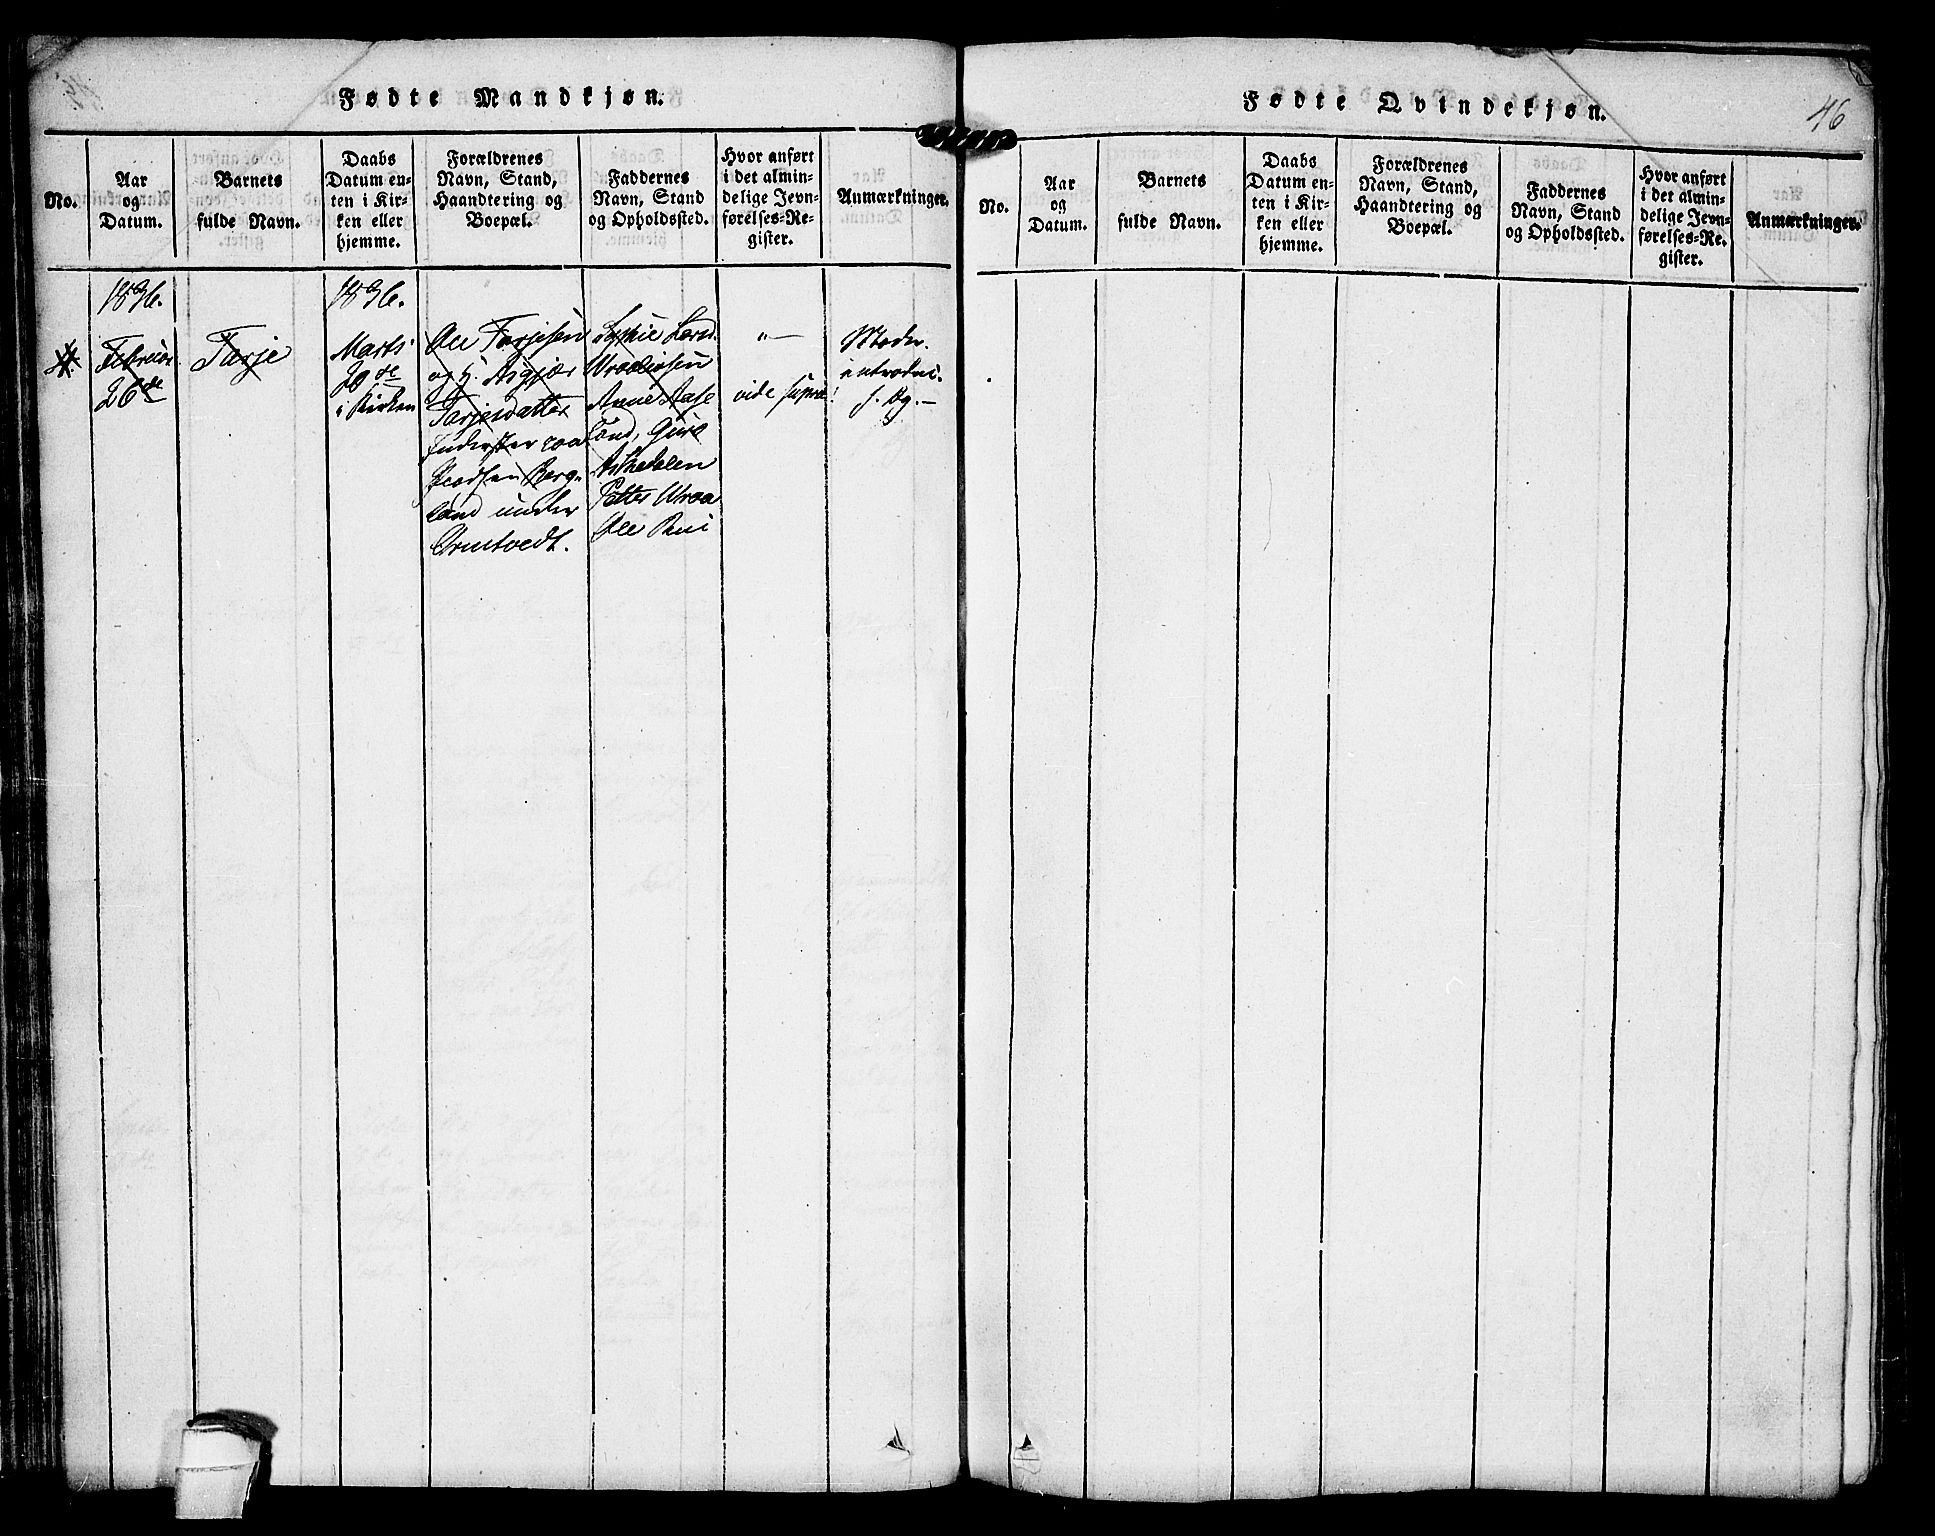 Fødte Mandkjøn.
No.
Aar
og
Datum.
Barnets
fulde Navn.
Daabs
Datum en-
ten i Kir-
ken eller
hjemme.
Forældrenes
Navn, Stand,
Haandtering og
Boepæl.
Faddernes
Navn, Stand
og Opholdssted.
Hvor anført
i det almin-
delige Jevn-
førelses-Re-
gister.
Anmærkninger.
1836.
Februar
26de
Tarje
1836.
Marts
20de
i Kirken
Ole Tarjesen
og H. Asgjær
Tarjesdatter
Inderster paa
Pladsen Berg-
land under
Ornetvedt.
Sophie Lovd.
Anne Aase
Tond, Guro
Askedalen
Petter Vraa
Ole Rui
"—
vide supra!
Moder.
introduc.
s. Dg.—
Fødte Qvindekjøn.
46
No.
Aar
og
Datum.
Barnets
fulde Navn.
Daabs
Datum en-
ten i Kir-
ken eller
hjemme.
Forældrenes
Navn, Stand,
Haandtering og
Boepæl.
Faddernes
Navn, Stand
og Opholdssted.
Hvor anført
i det almin-
delige Jevn-
førelses-Re-
gister.
Anmærkninger.